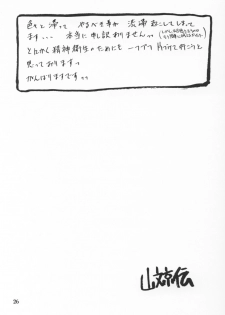 色々と滞って やるべき事が 渋滞おこしてしまって
ます... 本当に申し訳ありませんっっ
とにかく精神衛生のためにも 一つずつ 片づけて行こうと
思っておりますっ
がんばりますですっ
山文京伝
26